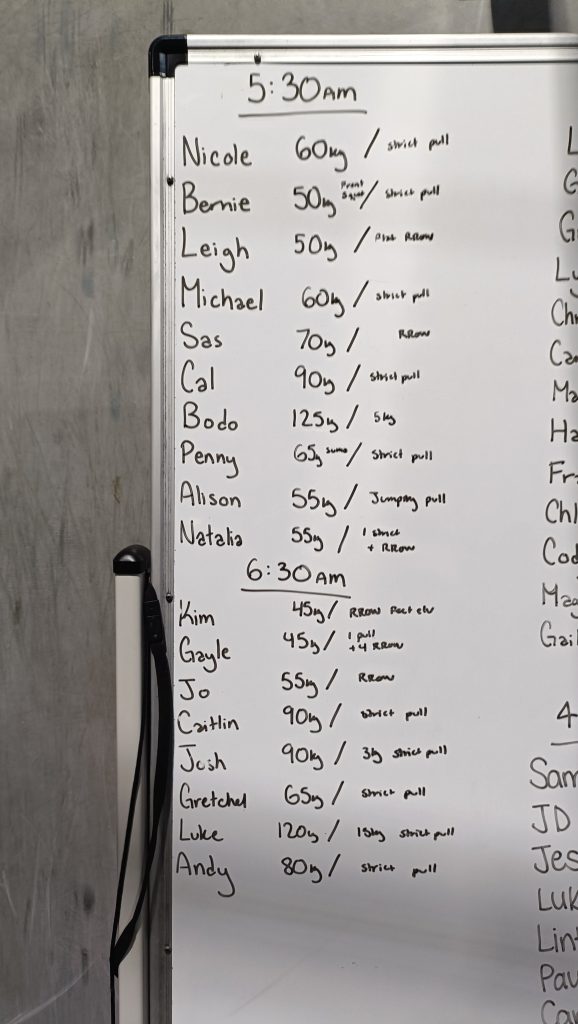 5:30AM
Nicole 60kg / strict pull
Bernie 50kg Front Squat / strict pull
Leigh 50kg / RRow
Michael 60kg / strict pull
Sas 70kg / RRow
Cal 90kg / strict pull
Bodo 125kg / 5kg
Penny 65kg sumo / strict pull
Alison 55kg / Jumping pull
Natalia 55kg / 1 strict + RRow
6:30AM
Kim 45kg / RRow Feet elv
Gayle 45kg / 1 pull +4 RRow
Jo 55kg / RRow
Caitlin 90kg / strict pull
Josh 90kg / 3kg strict pull
Gretchel 65kg / strict pull
Luke 120kg / 15kg strict pull
Andy 80kg / strict pull
L
G
G
Ly
Chr
Ca
Ma
Ha
Fr
Chl
Cod
Mag
Gail
4
Sam
JD
Jes
Luk
Lin
Pau
Ca